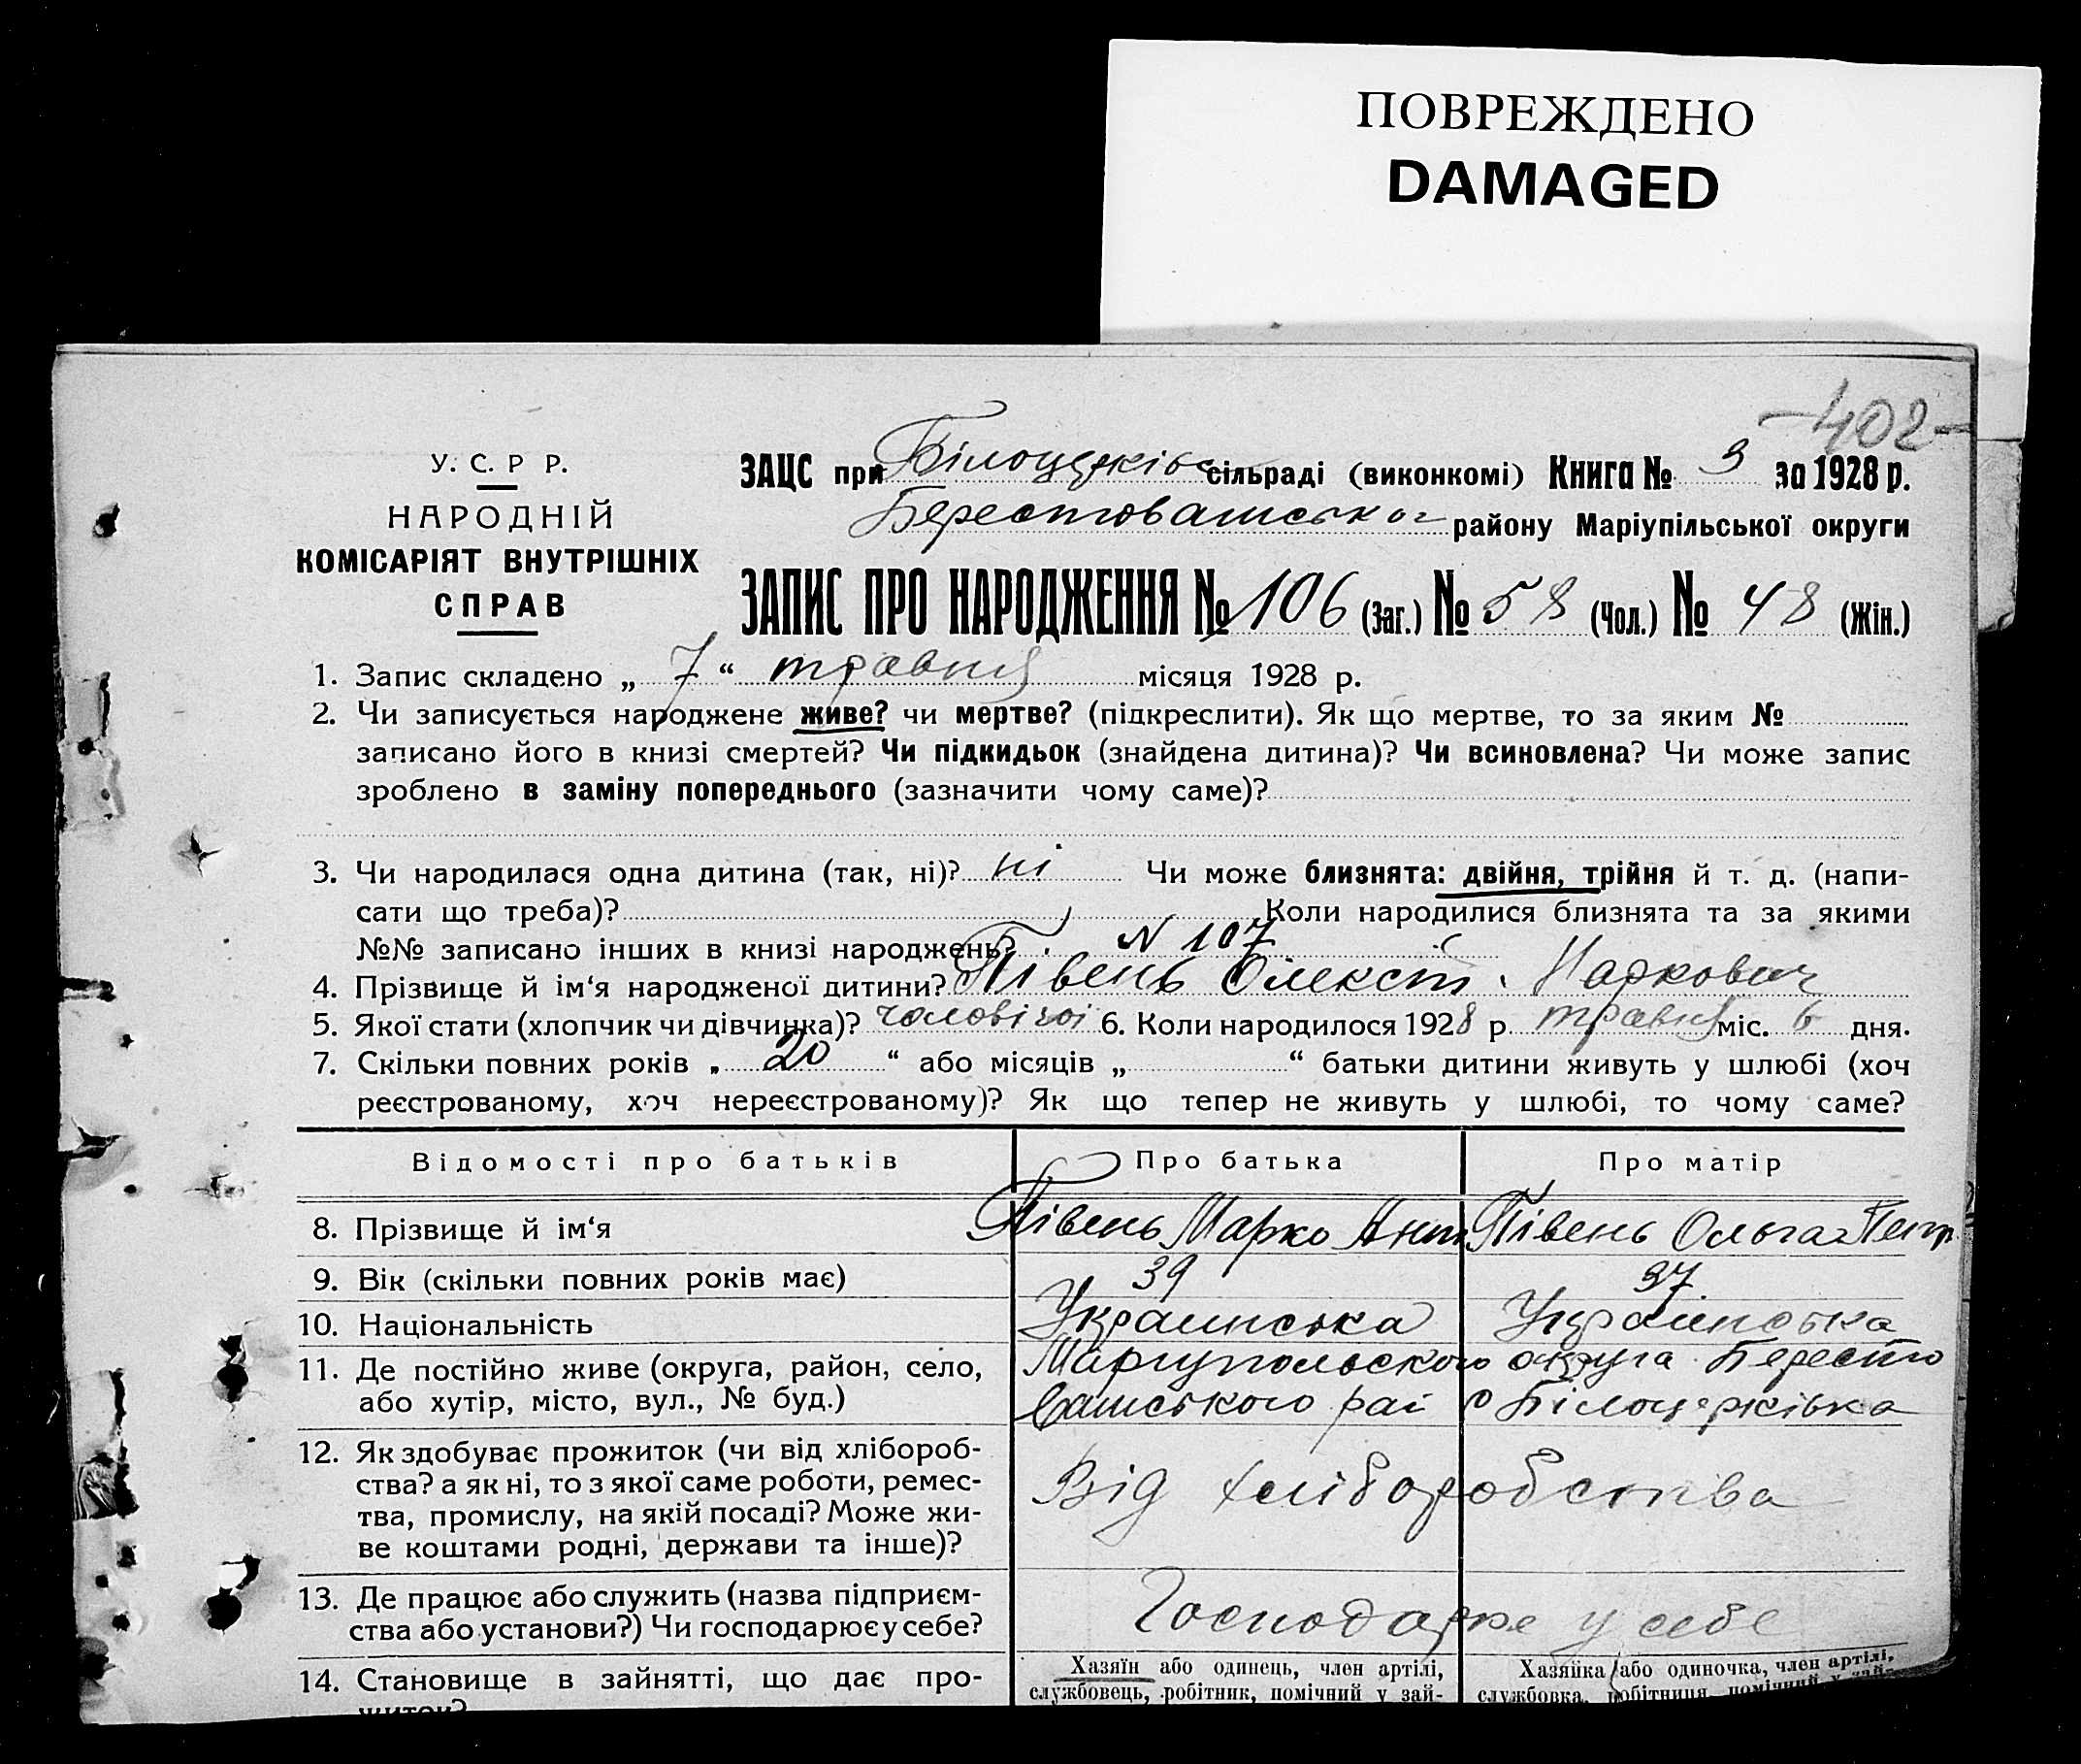 ПОВРЕЖДЕНО
DAMAGED
-402-
У. С. Р Р.
НАРОДНІЙ
КОМІСАРІЯТ ВНУТРІШНІХ
СПРАВ
ЗАЦС при Білоцерківс сільраді (виконкомі) Книга № 3 за 1928 р.
Берестовашської району Маріупільської округи
ЗАПИС ПРО НАРОДЖЕННЯ № 106 (Заг.) № 58 (Чол.) № 48 (Жін.)
1. Запис складено „ 7 “ травня місяця 1928 р.
2. Чи записується народжене живе? чи мертве? (підкреслити). Як що мертве, то за яким №
записано його в книзі смертей? Чи підкидьок (знайдена дитина)? Чи всиновлена? Чи може запис
зроблено в заміну попереднього (зазначити чому саме)?
3. Чи народилася одна дитина (так, ні)? ні Чи може близнята: двійня, трійня й т. д. (напи-
сати що треба)? Коли народилися близнята та за якими
№№ записано інших в книзі народжень? N 107
4. Прізвище й ім‘я народженої дитини? Півень Олексій Маркович
5. Якої стати (хлопчик чи дівчинка)? чоловічої 6. Коли народилося 1928 р. травня міс. 6 дня.
7. Скільки повних років „ 20 “ або місяців „ “ батьки дитини живуть у шлюбі (хоч
реєстрованому, хоч нереєстрованому)? Як що тепер не живуть у шлюбі, то чому саме?
Відомості про батьків Про батька Про матір
8. Прізвище й ім‘я Півень Марко Ант Півень Ольга Петр
9. Вік (скільки повних років має) 39 37
10. Національність Украинська Украинська
11. Де постійно живе (округа, район, село, Мариупольского округа Бересто
або хутір, місто, вул., № буд.) вашського рай с Білоцерківка
12. Як здобуває прожиток (чи від хлібороб-
ства? а як ні, то з якої саме роботи, ремес-
тва, промислу, на якій посаді? Може жи-
ве коштами родні, держави та інше)?
Від хліборобства
13. Де працює або служить (назва підприєм-
ства або установи?) Чи господарює у себе?
Господарює у себе
14. Становище в зайнятті, що дає про-
житок?
Хазяїн або одинець, член артілі,
службовець, робітник, помічний у зай-
Хазяйка або одиночка, член артілі,
службовка, робітниця, помічний у зай-